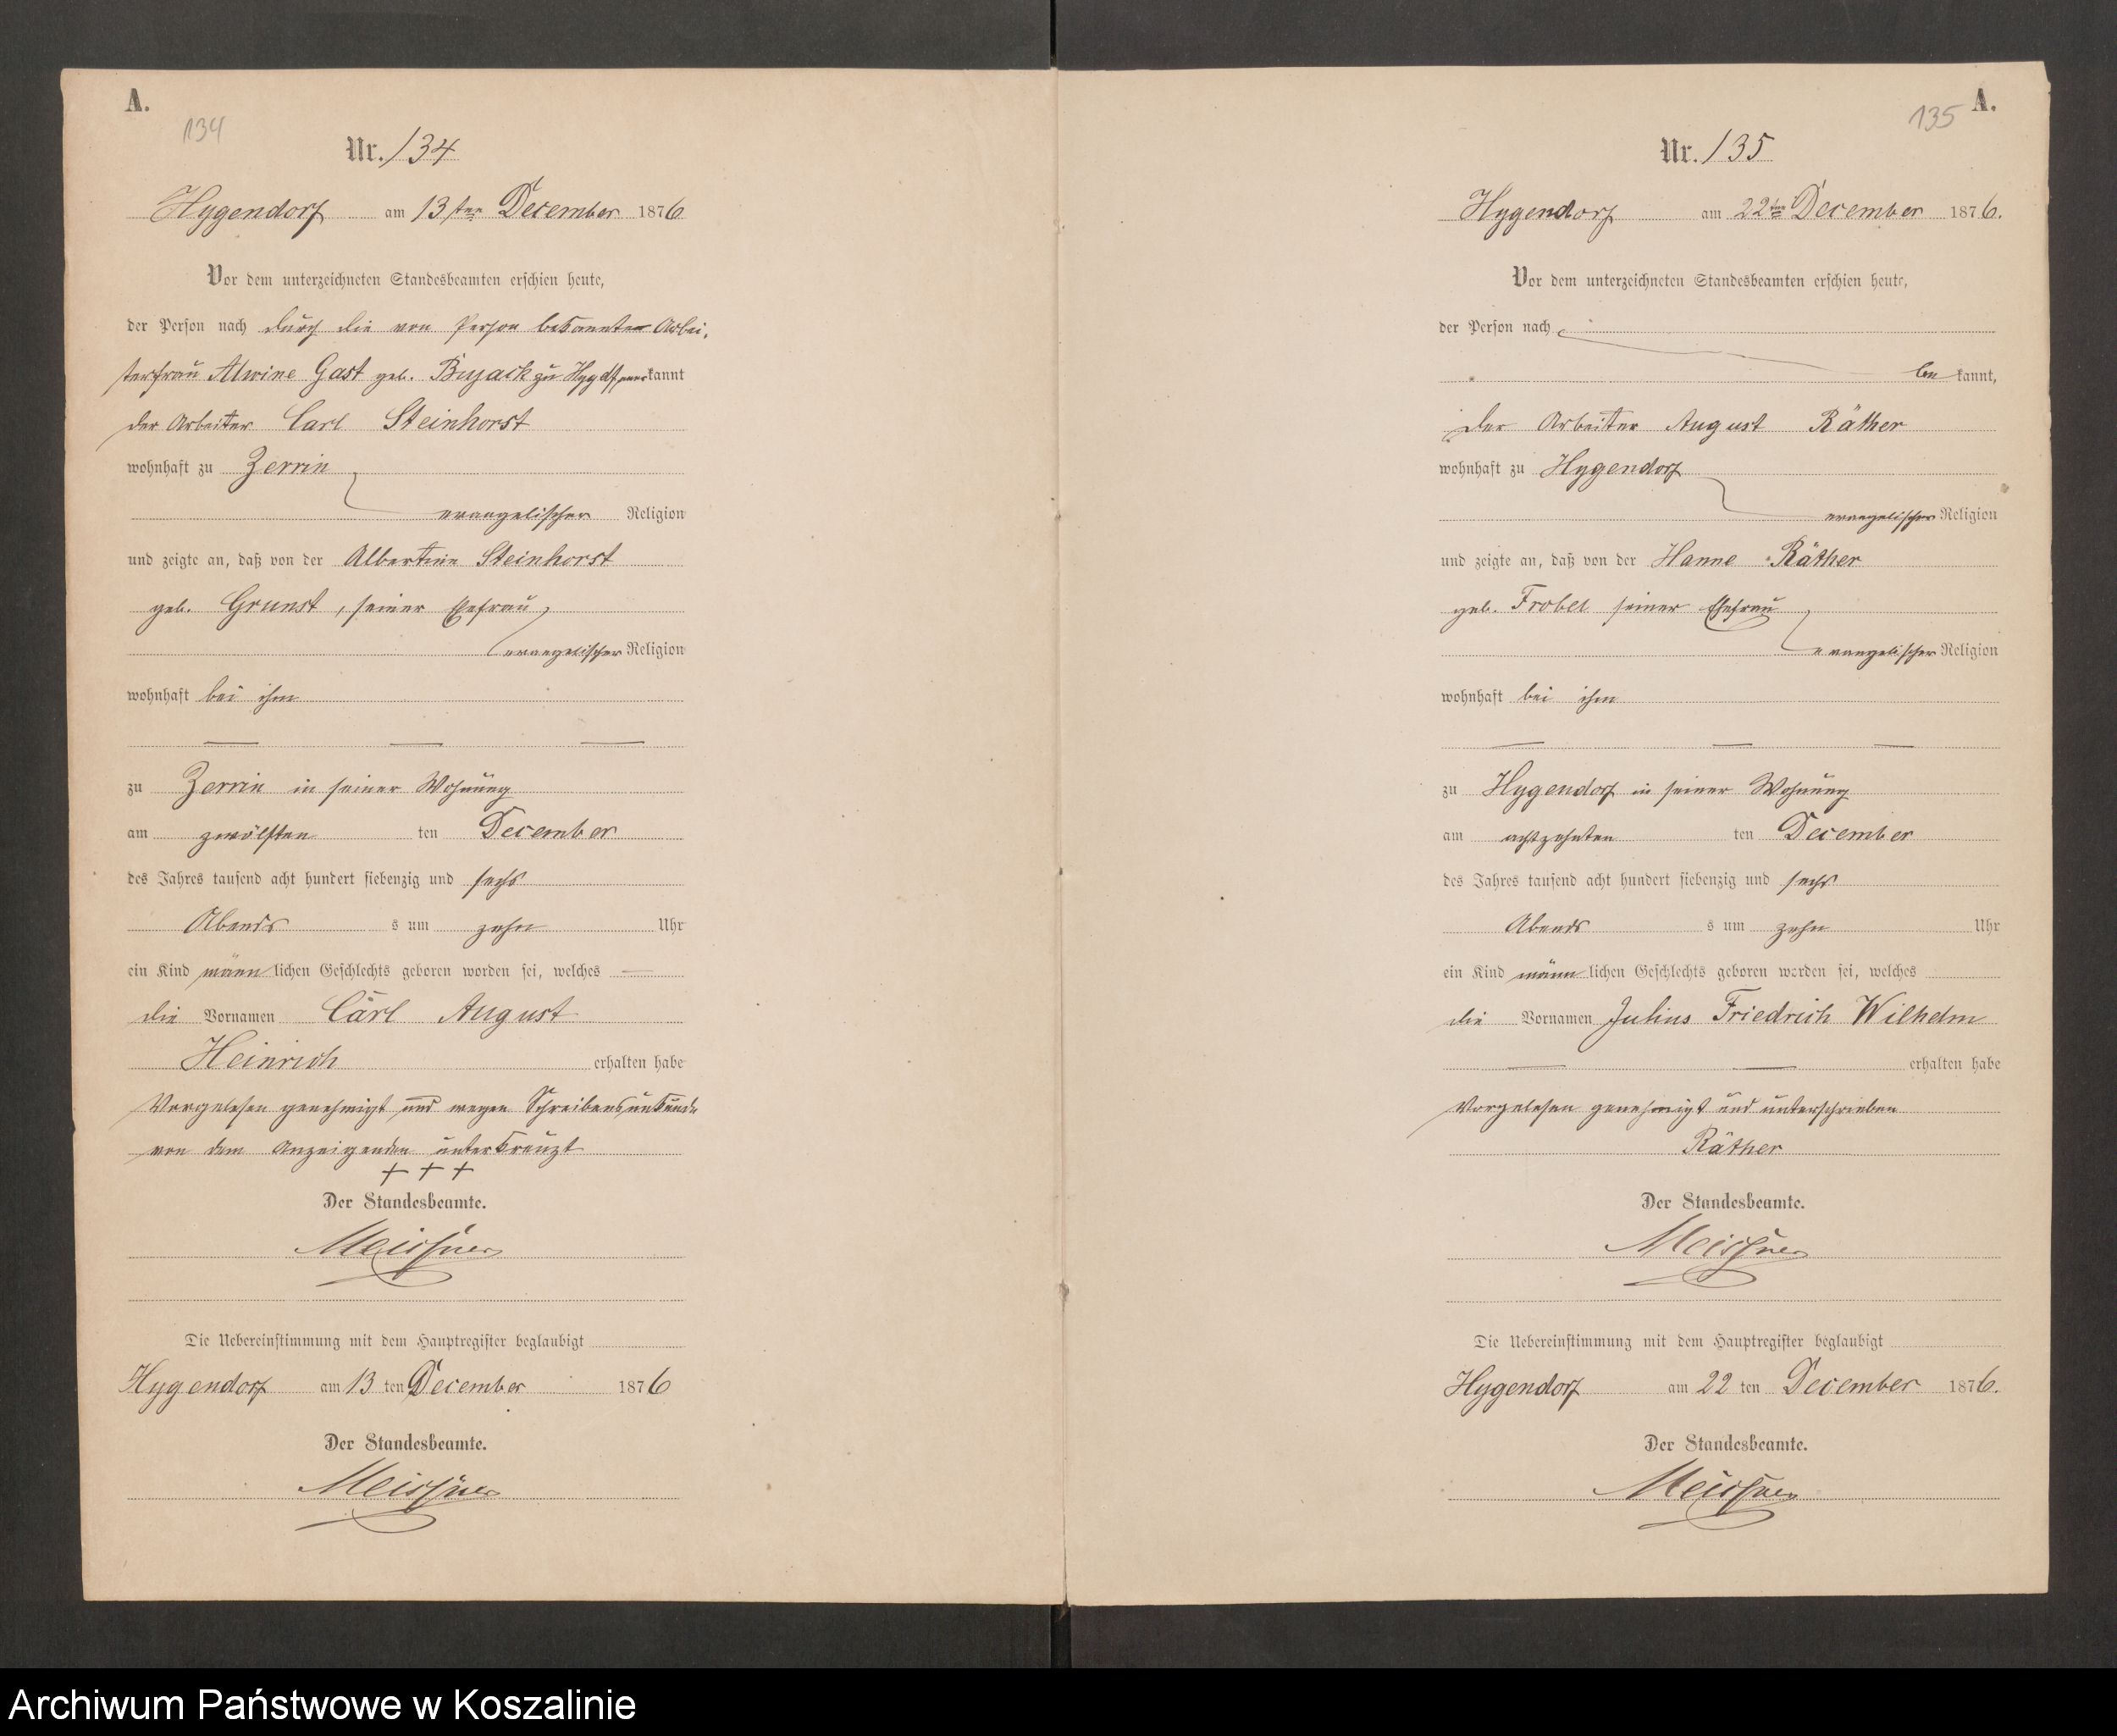 A.
134
Nr. 134
Hygendorf am 13ten December 1876
Vor dem unterzeichneten Standesbeamten erschien heute,
der Person nach durch die von Person bekannten Arbei-
terfrau Alwine Gast geb. Buyack zu Hygdf anerkannt
der Arbeiter Carl Steinhorst
wohnhaft zu Zerrin
evangelischer Religion
und zeigte an, daß von der Albertine Steinhorst
geb. Grunst, seiner Ehefrau,
evangelischer Religion
wohnhaft bei ihm
zu Zerrin in seiner Wohnung
am zwölften ten December
des Jahres tausend acht hundert siebenzig und sechs
Abends s um zehn Uhr
ein Kind männlichen Geschlechts geboren worden sei, welches
die Vornamen Carl August
Heinrich erhalten habe
Vorgelesen genehmigt und wegen Schreibensunkunde
von dem Anzeigenden unterkreuzt
+ + +
Der Standesbeamte.
Meissner
Die Uebereinstimmung mit dem Hauptregister beglaubigt
Hygendorf am 13 ten December 1876
Der Standesbeamte.
Meissner
A.
135
Nr. 135
Hygendorf am 22ten December 1876.
Vor dem unterzeichneten Standesbeamten erschien heute,
der Person nach
be kannt,
der Arbeiter August Räther
wohnhaft zu Hygendorf
evangelischer Religion
und zeigte an, daß von der Hanne Räther
geb. Frobel seiner Ehefrau
evangelischer Religion
wohnhaft bei ihm
zu Hygendorf in seiner Wohnung
am achtzehnten ten December
des Jahres tausend acht hundert siebenzig und sechs
Abends s um zehn Uhr
ein Kind männlichen Geschlechts geboren worden sei, welches
die Vornamen Julius Friedrich Wilhelm
erhalten habe
Vorgelesen genehmigt und unterschrieben
Räther
Der Standesbeamte.
Meissner
Die Uebereinstimmung mit dem Hauptregister beglaubigt
Hygendorf am 22 ten December 1876.
Der Standesbeamte.
Meissner
Archiwum Państwowe w Koszalinie